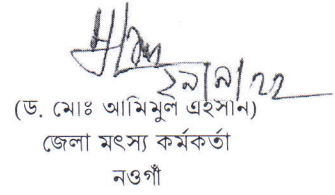 ২৯/৯/২২
(ড. মোঃ আমিমুল এহসান)
জেলা মৎস্য কর্মকর্তা
নওগাঁ